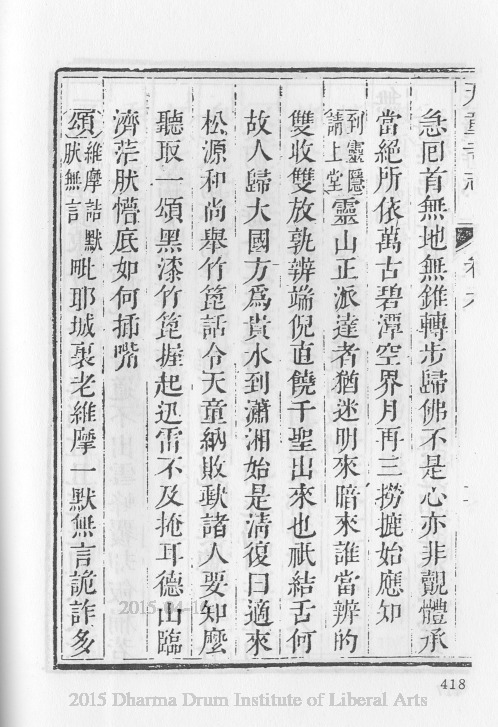 急回首無地無錐轉步歸佛不是心亦非覿體承
當絕所依萬古碧潭空界月再三撈摝始應知
到靈隱請上堂靈山正派達者猶迷明來暗來誰當辨的
雙收雙放孰辨端倪直饒千聖出來也祇結舌何
故人歸大國方為貴水到瀟湘始是清復曰適來
松源和尚舉竹箆話令天童納敗歃諸人要知麼
聽取一頌黑漆竹箆握起迅雷不及掩耳德山臨
濟茫肰懵底如何揷嘴
頌維摩詰默肰無言毗耶城裏老維摩一默無言詭詐多
418
2015-04-16
2015 Dharma Drum Institute of Liberal Arts